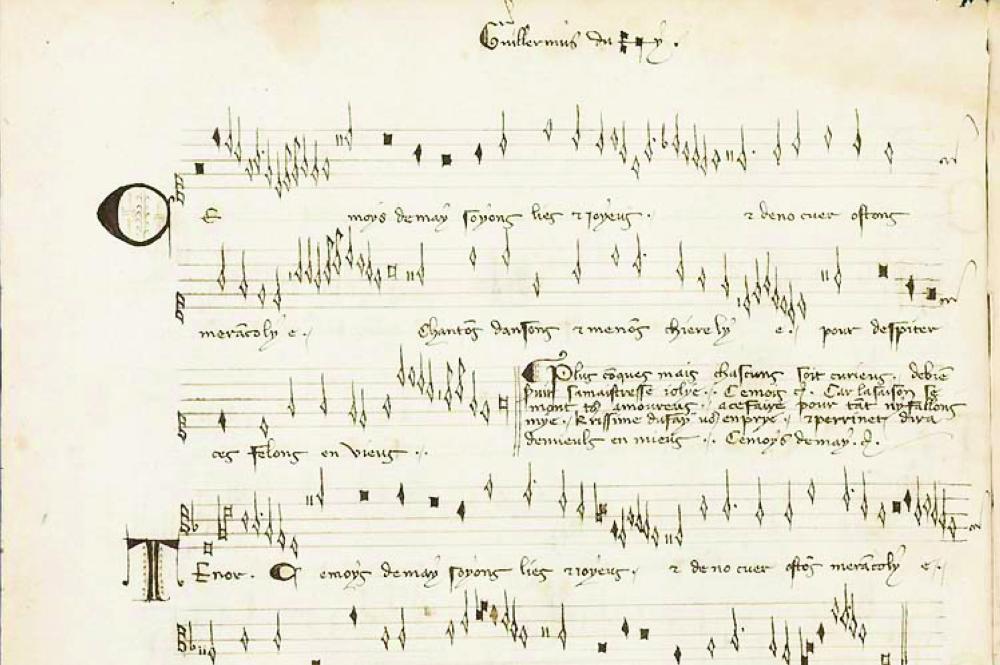 Guillermus du fay.
CE moys de may soyons lies et joyeus. et de no cuer ostons
merãcolye. Chantõs dansons et menõs chiere lye. pour despiter
ces felons envieus.
Plus cõques mais chascuns soit curieus. de biẽ
s̃uir sa maistresse jolye. Ce mois &c. Car la saison se
mont to⁹ amoureus. a ce faire pour tãt ny fallons
mye. Krissime du fay vo⁹ en prye. et perrinet dira
de mieuls en mieus. Ce moys de may. &c.
TEnor. Ce moys de may soyons lies et joyeus. et de no cuer ostõs merãcolye.